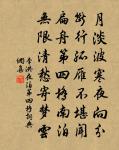 月淡波寒夜向分
斷行孤雁不堪聞
扁舟第四橋南泊
無限清愁寄夢雲
李洪夜泊第四橋詞典
網集